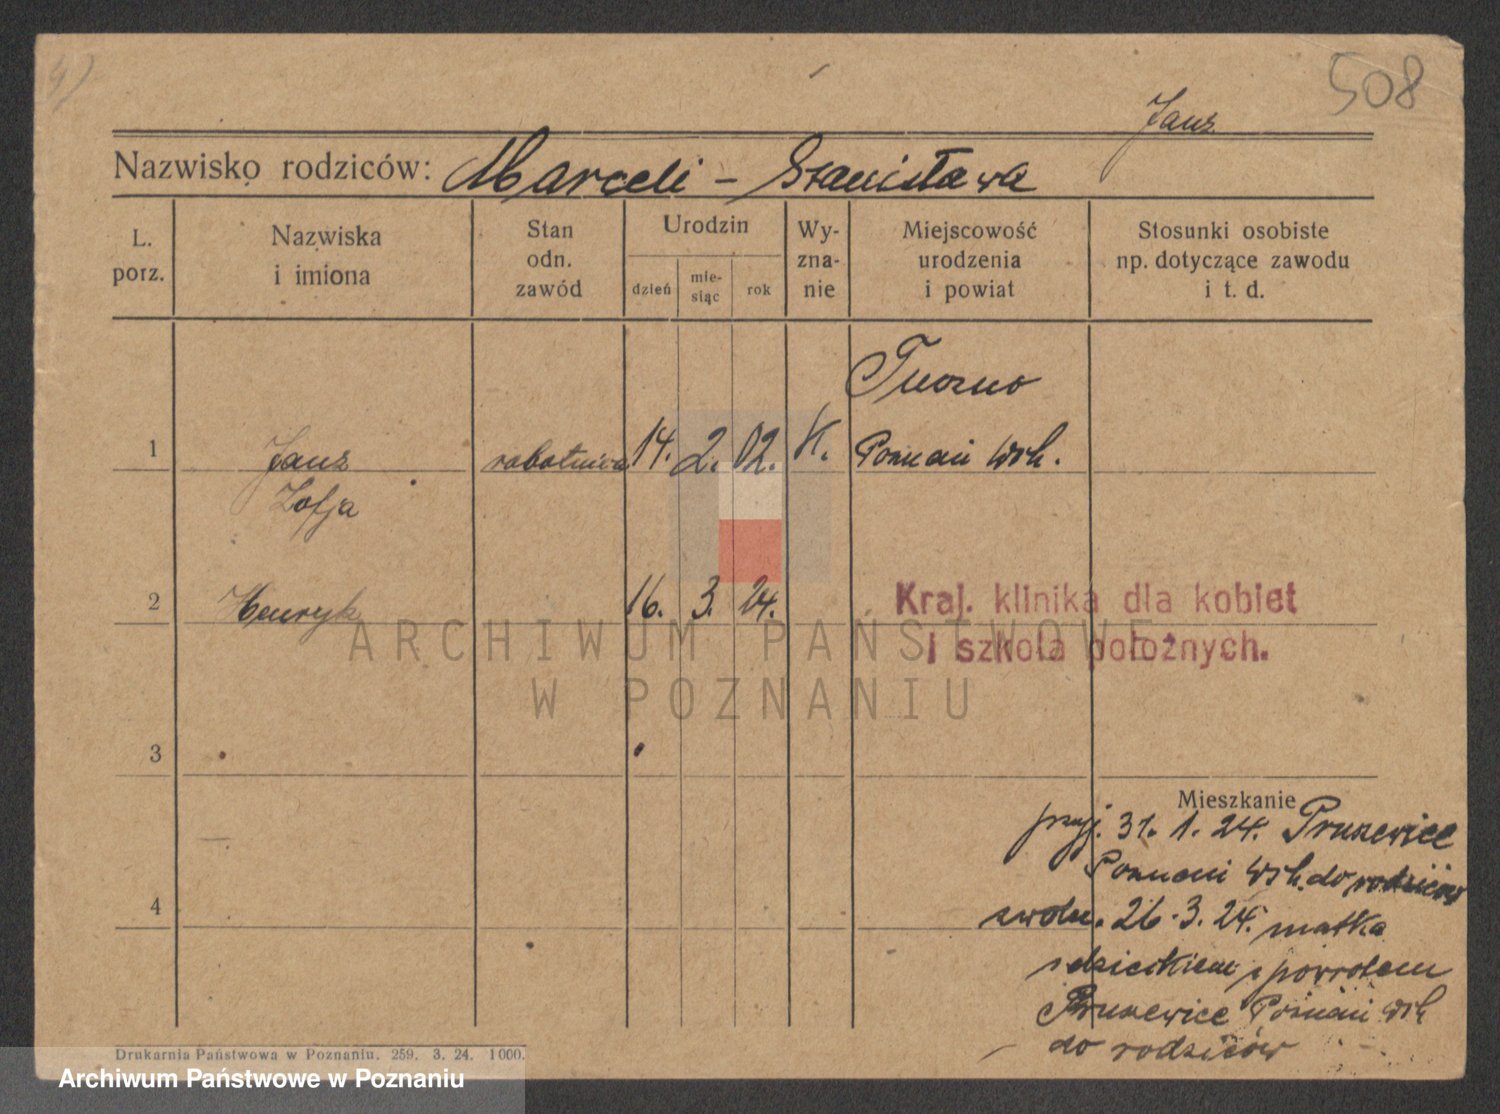 4)
508
Janz
Nazwisko rodziców: Marceli - Stanisława
L. porz.
Nazwiska i imiona
Stan odn. zawód
Urodzin
dzień
mie-siąc
rok
Wy-zna-nie
Miejscowość urodzenia i powiat
Stosunki osobiste np. dotyczące zawodu i t. d.
Tuczno
1 Janz robotnica 14. 2. 02. K. Poznań Wsch.
Zofja
2 Henryk 16. 3. 24. Kraj. klinika dla kobiet
i szkoła położnych.
ARCHIWUM PAŃSTWOWE
W POZNANIU
3
Mieszkanie
przyj. 31. 1. 24. Pruszewice
Poznań Wsch. do rodziców
4
zwoln. 26. 3. 24. matka
z dzieckiem z powrotem
Pruszewice Poznań Wsch
do rodziców
Drukarnia Państwowa w Poznaniu. 259. 3. 24. 1000.
Archiwum Państwowe w Poznaniu